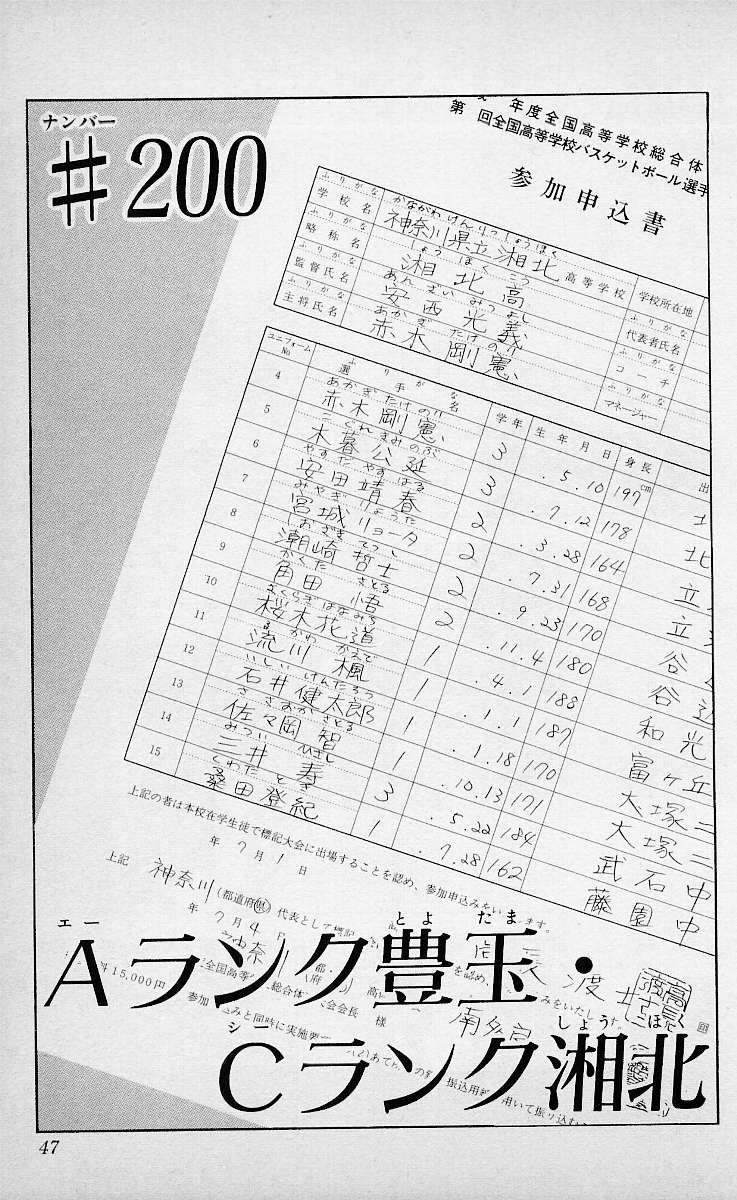 ナンバー
#200
年度全国高等学校総合体
第 回全国高等学校バスケットボール選手
参加申込書
ふりがな かながわけんりつしょうほく
学校名 神奈川県立湘北高等学校 学校所在地
ふりがな しょうほくこう ふりがな
略称名 湘北高 代表者氏名
ふりがな あんざいみつよし ふりがな
監督氏名 安西光義 コーチ
ふりがな あかぎたけのり ふりがな
主将氏名 赤木剛憲 マネージャー
ユニフォームNo 選手名 ふりがな 学年 生年月日 身長 出
あかぎたけのり
4 赤木剛憲 3 .5.10 197cm 北
こぐれきみのぶ
5 木暮公延 3 .7.12 178 北
やすだやすはる
6 安田靖春 2 .3.28 164 立
みやぎりょうた
7 宮城リョータ 2 .7.31 168 立
しおざきてつし
8 潮崎哲士 2 .9.23 170 谷
かくたさとる
9 角田悟 2 .11.4 180 谷
さくらぎはなみち
10 桜木花道 1 .4.1 188 和光
るかわかえで
11 流川楓 1 .1.1 187 富ヶ丘
いしいけんたろう
12 石井健太郎 1 .1.18 170 大塚二
ささおかさとる
13 佐々岡智 1 .10.13 171 大塚二
みついひさし
14 三井寿 3 .5.22 184 武石中
くわたとき
15 桑田登紀 1 .7.28 162 藤園中
上記の者は本校在学生徒で標記大会に出場することを認め、参加申込みをいたします。
年7月1日
上記 神奈川(都道府県)代表として
年7月4日
神奈川
15,000円
全国高等 総合体 会会長 様
参加 込みと同時に実施要
振込用紙 用いて振り込む
エー とよだま
Aランク豊玉・
シー しょうほく
Cランク湘北
47